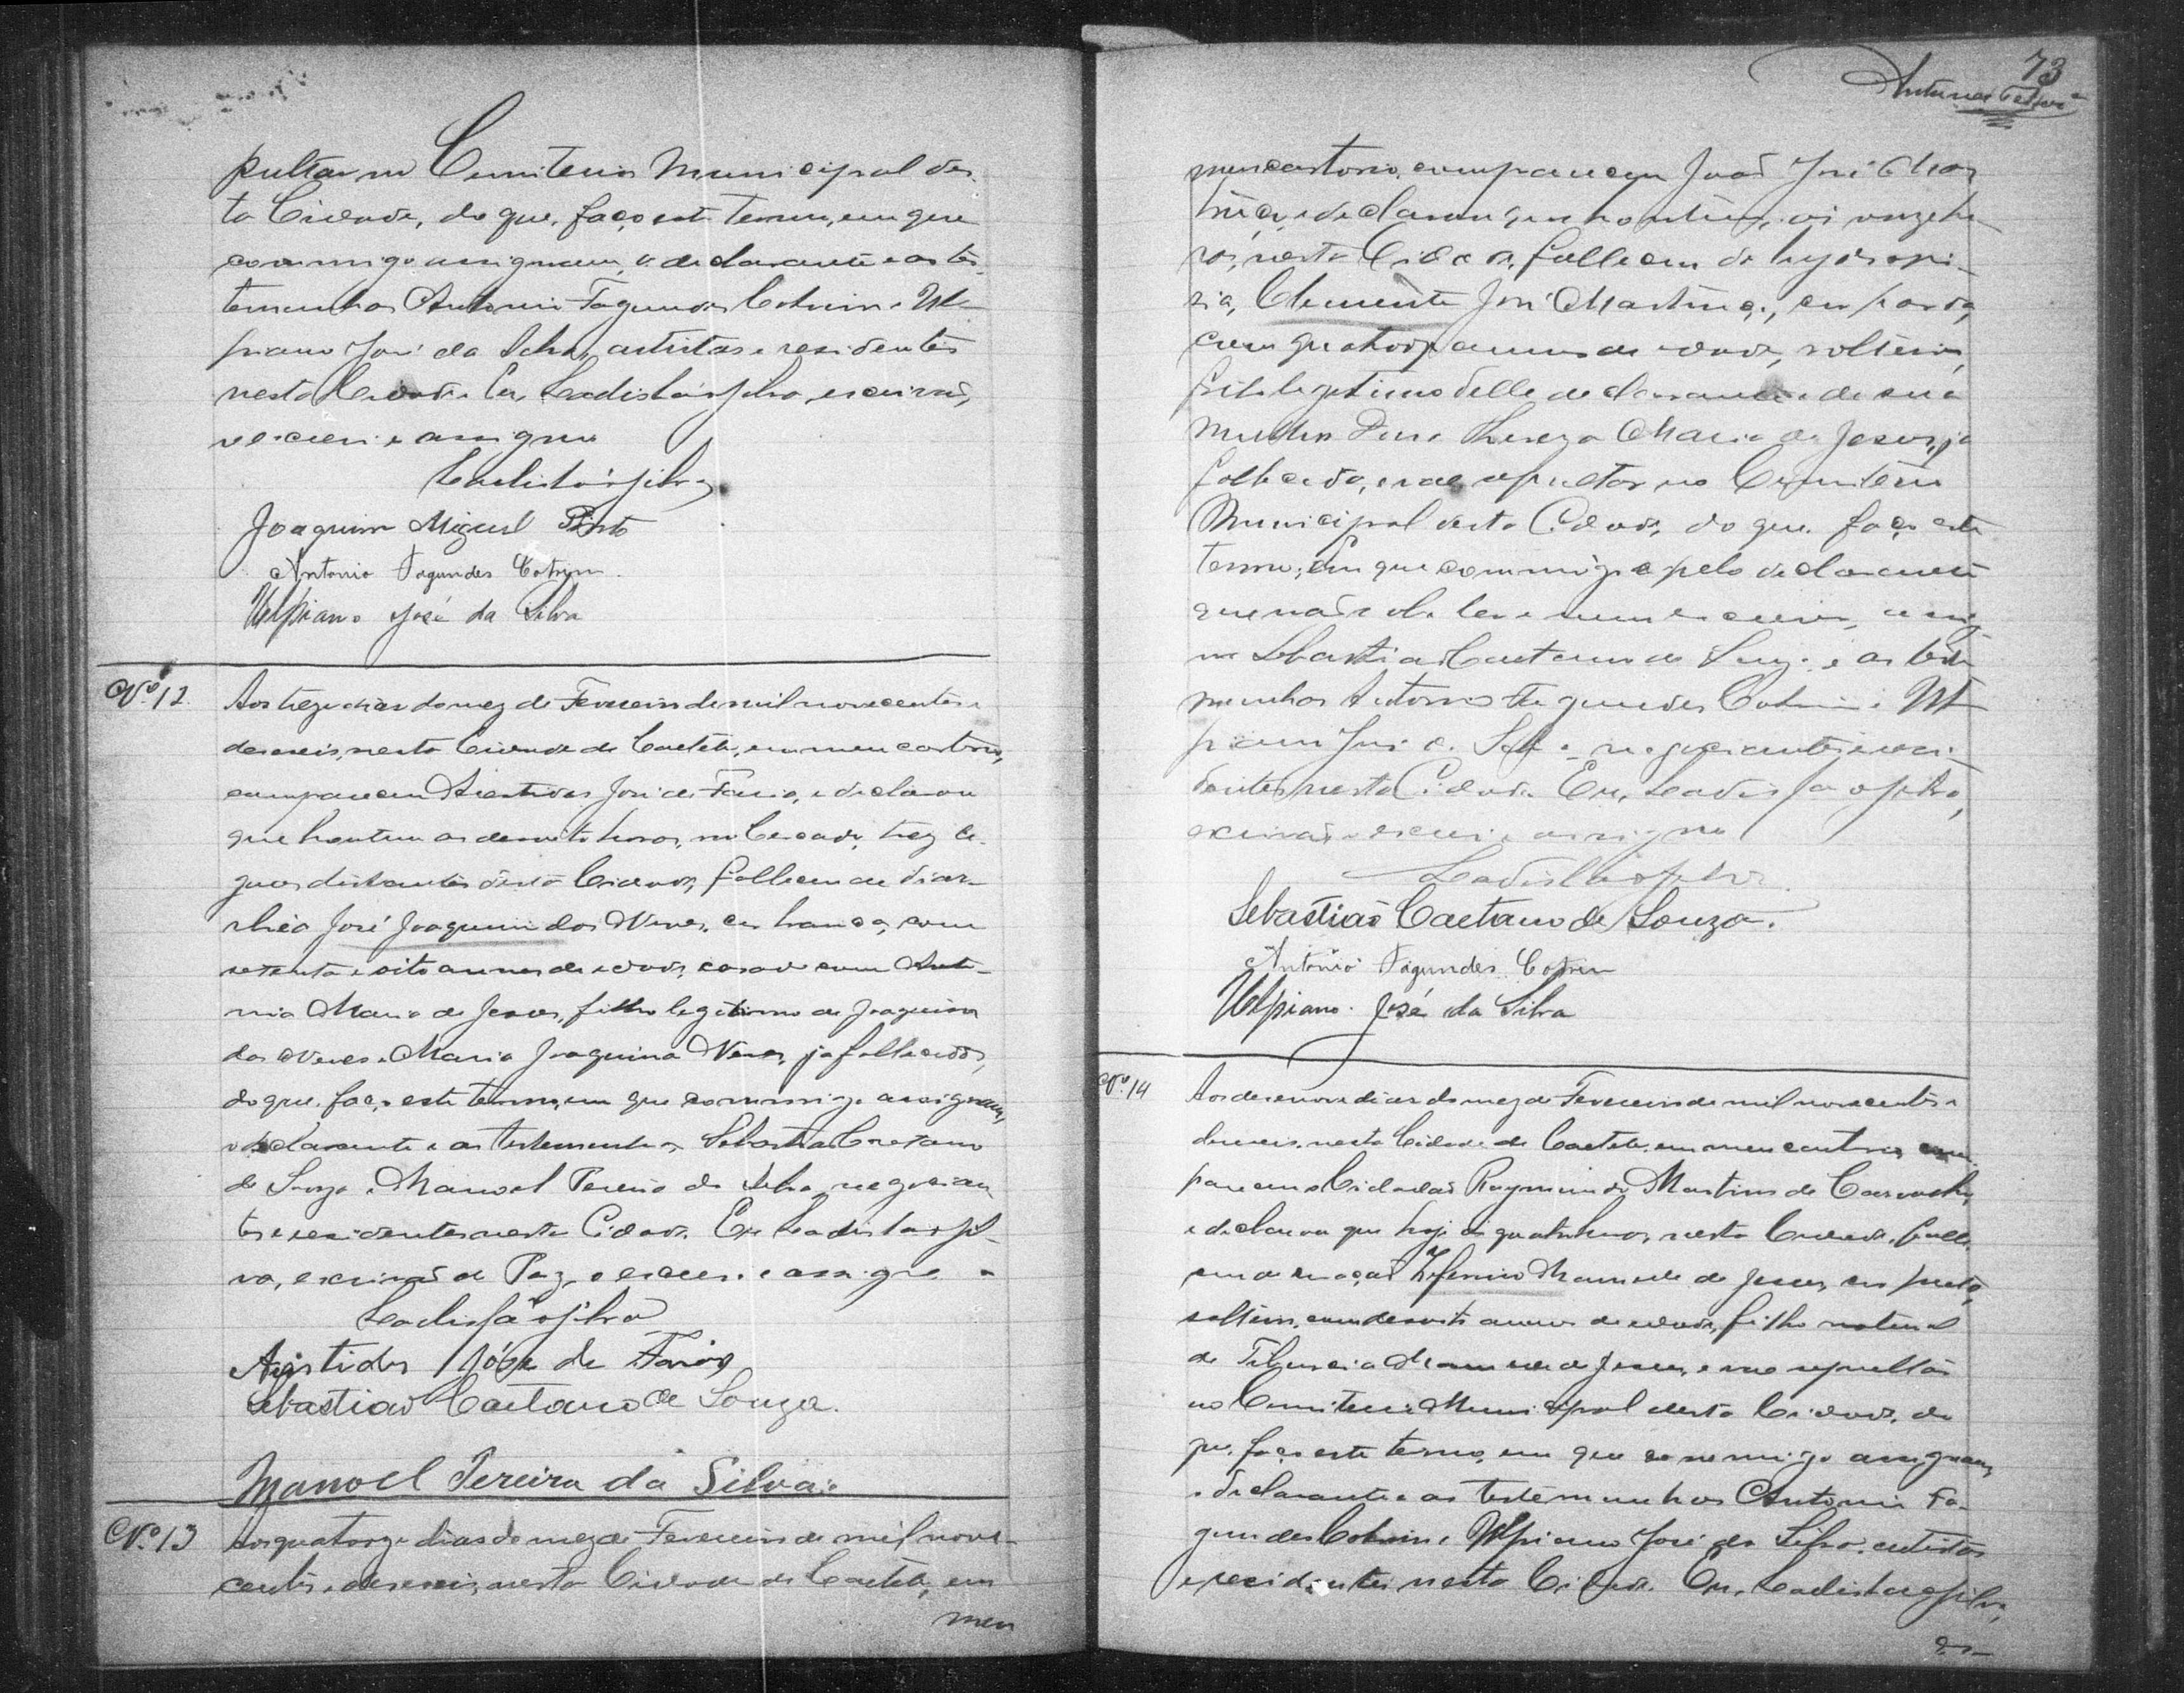 pultar no Cemiterio Municipal des-
ta Cidade, do que, faço este termo, em que
commigo assignam, o declarante e as tes-
temunhas Antonio Fagundes Cotrim e Ul-
piano José da Silva, artistas e residentes
nesta Cidade. Eu, Ladisláo Silva, escrivão,
escrevi e assigno
Ladisláo Silva
Joaquim Miguel Pinto
Antonio Fagundes Cotrym
Ulpiano José da Silva
Nº 12. Aos treze dias do mez de Fevereiro de mil novecentos e
deseseis, nesta Cidade de Caeteté, em meu cartorio,
compareceu Aristides José de Faria, e declarou
que hontem as desoito horas, no Cercado, trez le-
guas distantes desta Cidade, falleceu de diar-
rhéa José Joaquim das Neves, cor branca, com
setenta e oito annos de edade, casado com Anto-
nia Maria de Jesus, filho legitimo de Joaquim
das Neves e Maria Joaquina Neves, ja fallecidos,
do que, faço este termo, em que commigo assignam,
o declarante e as testemunhas Sebastião Caetano
de Souza e Manoel Pereira da Silva, negocian-
tes e residentes nesta Cidade. Eu Ladisláo Sil-
va, escrivão de Paz, o escrevi e assigno
Ladisláo Silva
Aristides José de Faria
Sebastião Caetano de Souza.
Manoel Pereira da Silva
Nº 13 Aos quatorze dias do mez de Fevereiro de mil nove-
centos e deseseis, nesta Cidade de Caeteté, em
meu
73
Antunes
meu cartorio, compareceu João José Mar-
tins, e declarou que hontem, as onze ho-
ras, nesta Cidade, falleceu de hydropi-
sia, Clemente José Martins, cor parda,
com quatorze annos de edade, solteiro,
filho legitimo delle declarante e de sua
mulher Dona Thereza Maria de Jesus, ja
fallecida, e vae sepultar no Cemiterio
Municipal desta Cidade, do que, faço este
termo, em que commigo e pelo declarante
que não sabe ler e nem escrever, assig-
na Sebastião Caetano de Souza e as teste-
munhas Antonio Fagundes Cotrim e Ul-
piano José da Silva, negociantes e resi-
dentes nesta Cidade. Eu, Ladisláo Silva,
escrivão o escrevi e assigno
Ladisláo Silva.
Sebastião Caetano de Souza.
Antonio Fagundes Cotrim
Ulpiano José da Silva
Nº 14 Aos desenove dias do mez de Fevereiro de mil novecentos e
deseseis, nesta Cidade de Caeteté, em meu cartorio, com-
pareceu o Cidadão Raymundo Martins de Carvalho,
e declarou que hoje as quatro horas, nesta Cidade, falle-
ceu de Zeferino Manuele de Jesus, cor preta,
solteiro, com desoito annos de edade, filho natural
de Tiburcia Manuele de Jesus, e vae sepultar
no Cemiterio Municipal desta Cidade, do
que, faço este termo, em que commigo assignam,
o declarante e as testemunhas Antonio Fa-
gundes Cotrim e Ulpiano José da Silva, artistas
e residentes nesta Cidade. Eu, Ladisláo Silva,
es-